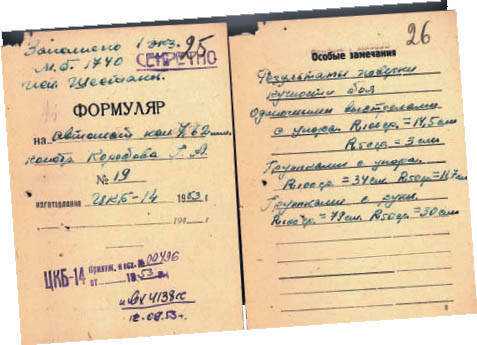 Заполнено 1 экз.
25
М.Б. 1740
СЕКРЕТНО
ФОРМУЛЯР
на автомат кал 7,62 мм.
констр Коробова Г. А.
№ 19
изготовления ЦКБ-14 1953 г
194 г
ЦКБ-14 Прилож. к исх. № 00496
от 1953 г.
вх 4138сс
12.08.53г.
26
Особые замечания
Результаты проверки
кучности боя
Одиночными выстрелами
с упора. R100ср. = 14,5см
R50ср = 3см
Группками с упора
R100ср. = 34см R50ср = 14,7см
Группками с руки
R100ср. = 78см R50ср. = 30см